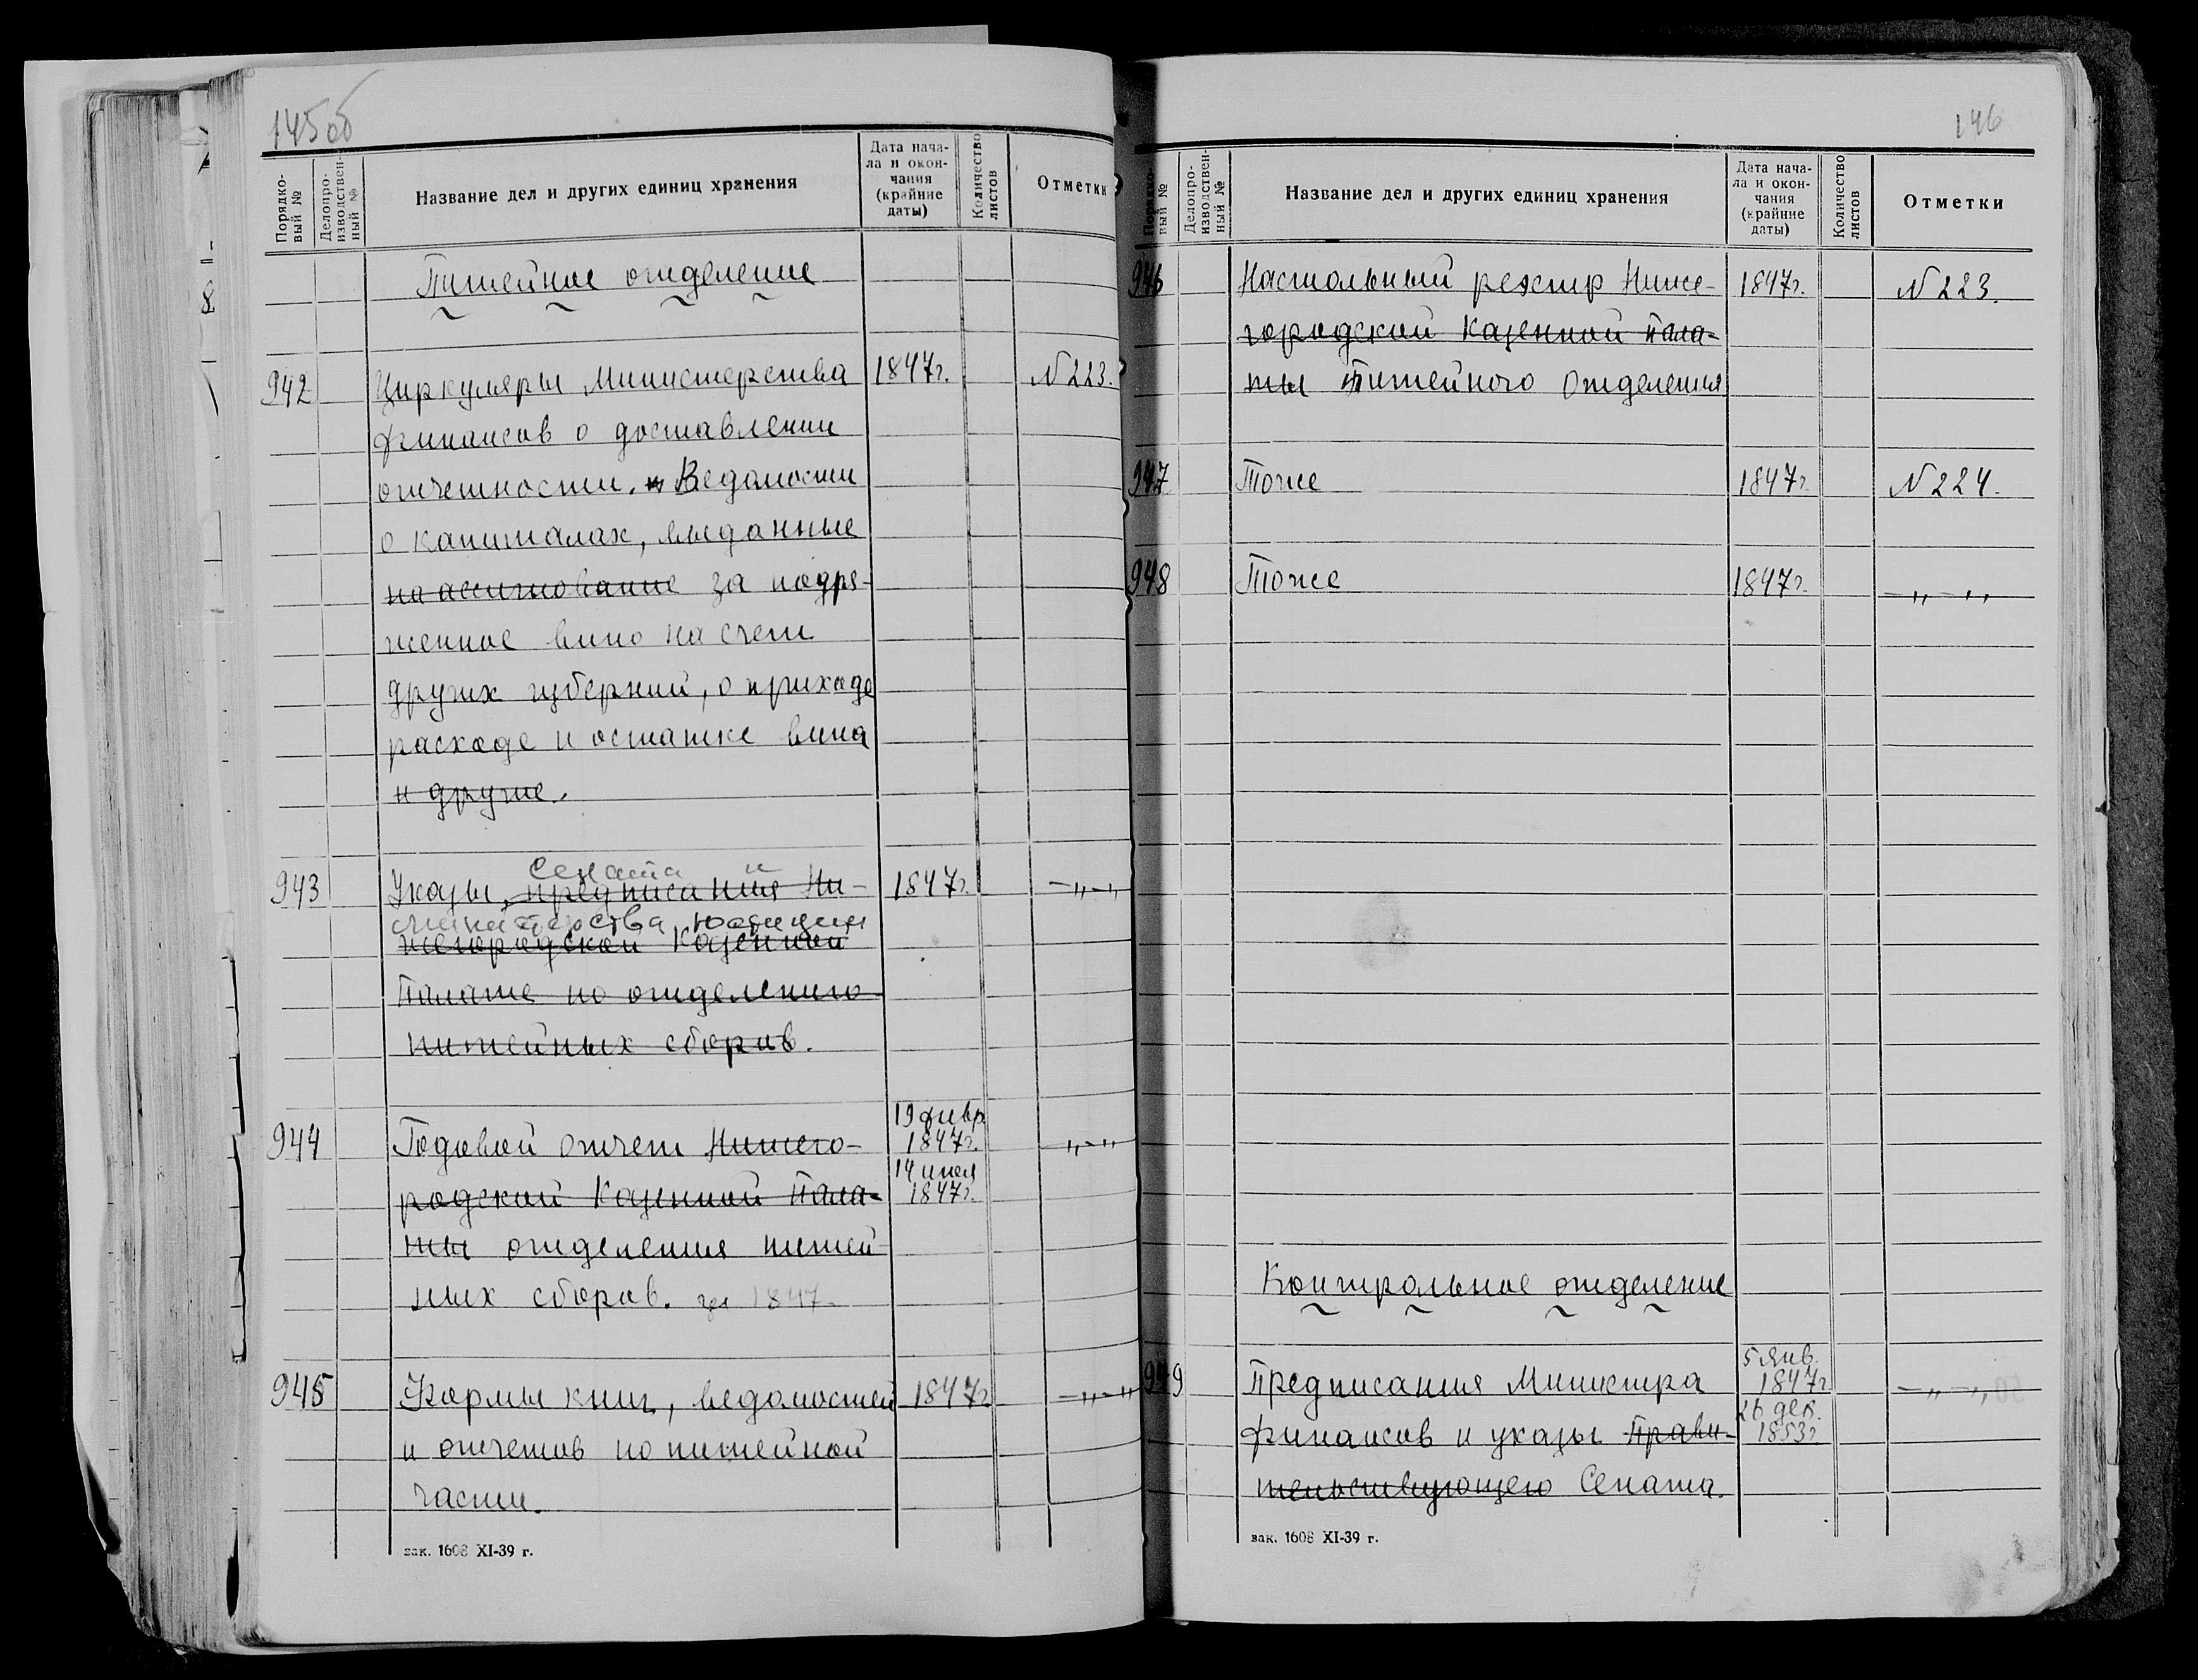 145об
Порядко-
вый №
Делопро-
изводствен-
ный №
Название дел и других единиц хранения
Дата нача-
ла и окон-
чания
(крайние
даты)
Количество
листов
Отметки
Питейное отделение
942 Циркуляры Министерства 1847г. N 223.
финансов о доставлении
отчетности. и Ведомости
о капиталах, выданные
на ассигнование за подря-
женное вино на счет
других губерний, о приходе
расходе и остатке вина
и другие.
Сената и
943 Указы, предписания Ни- 1847г. —„—„
министерства юстиции
жегородской Казенной
Палате по отделению
питейных сборов.
19 февр
944 Годовой отчет Нижего- 1847г. —„—„
14 июля
родской Казенной Пала- 1847г.
ты отделения питей-
ных сборов. за 1847
945 Формы книг, ведомостей 1847г —„—„
и отчетов по питейной
части.
зак. 1608 XI-39 г.
146
Порядко-
вый №
Делопро-
изводствен-
ный №
Название дел и других единиц хранения
Дата нача-
ла и окон-
чания
(крайние
даты)
Количество
листов
Отметки
946 Настольный реестр Ниже- 1847г. N 223.
городской Казенной Пала-
ты Питейного отделения
947 Тоже 1847г. N 224.
948 Тоже 1847г. —„—„
Контрольное отделение
5 Янв.
949 Предписания Министра 1847г —„—„
26 дек.
финансов и указы Прави- 1853г
тельствующего Сената.
зак. 1608 XI-39 г.